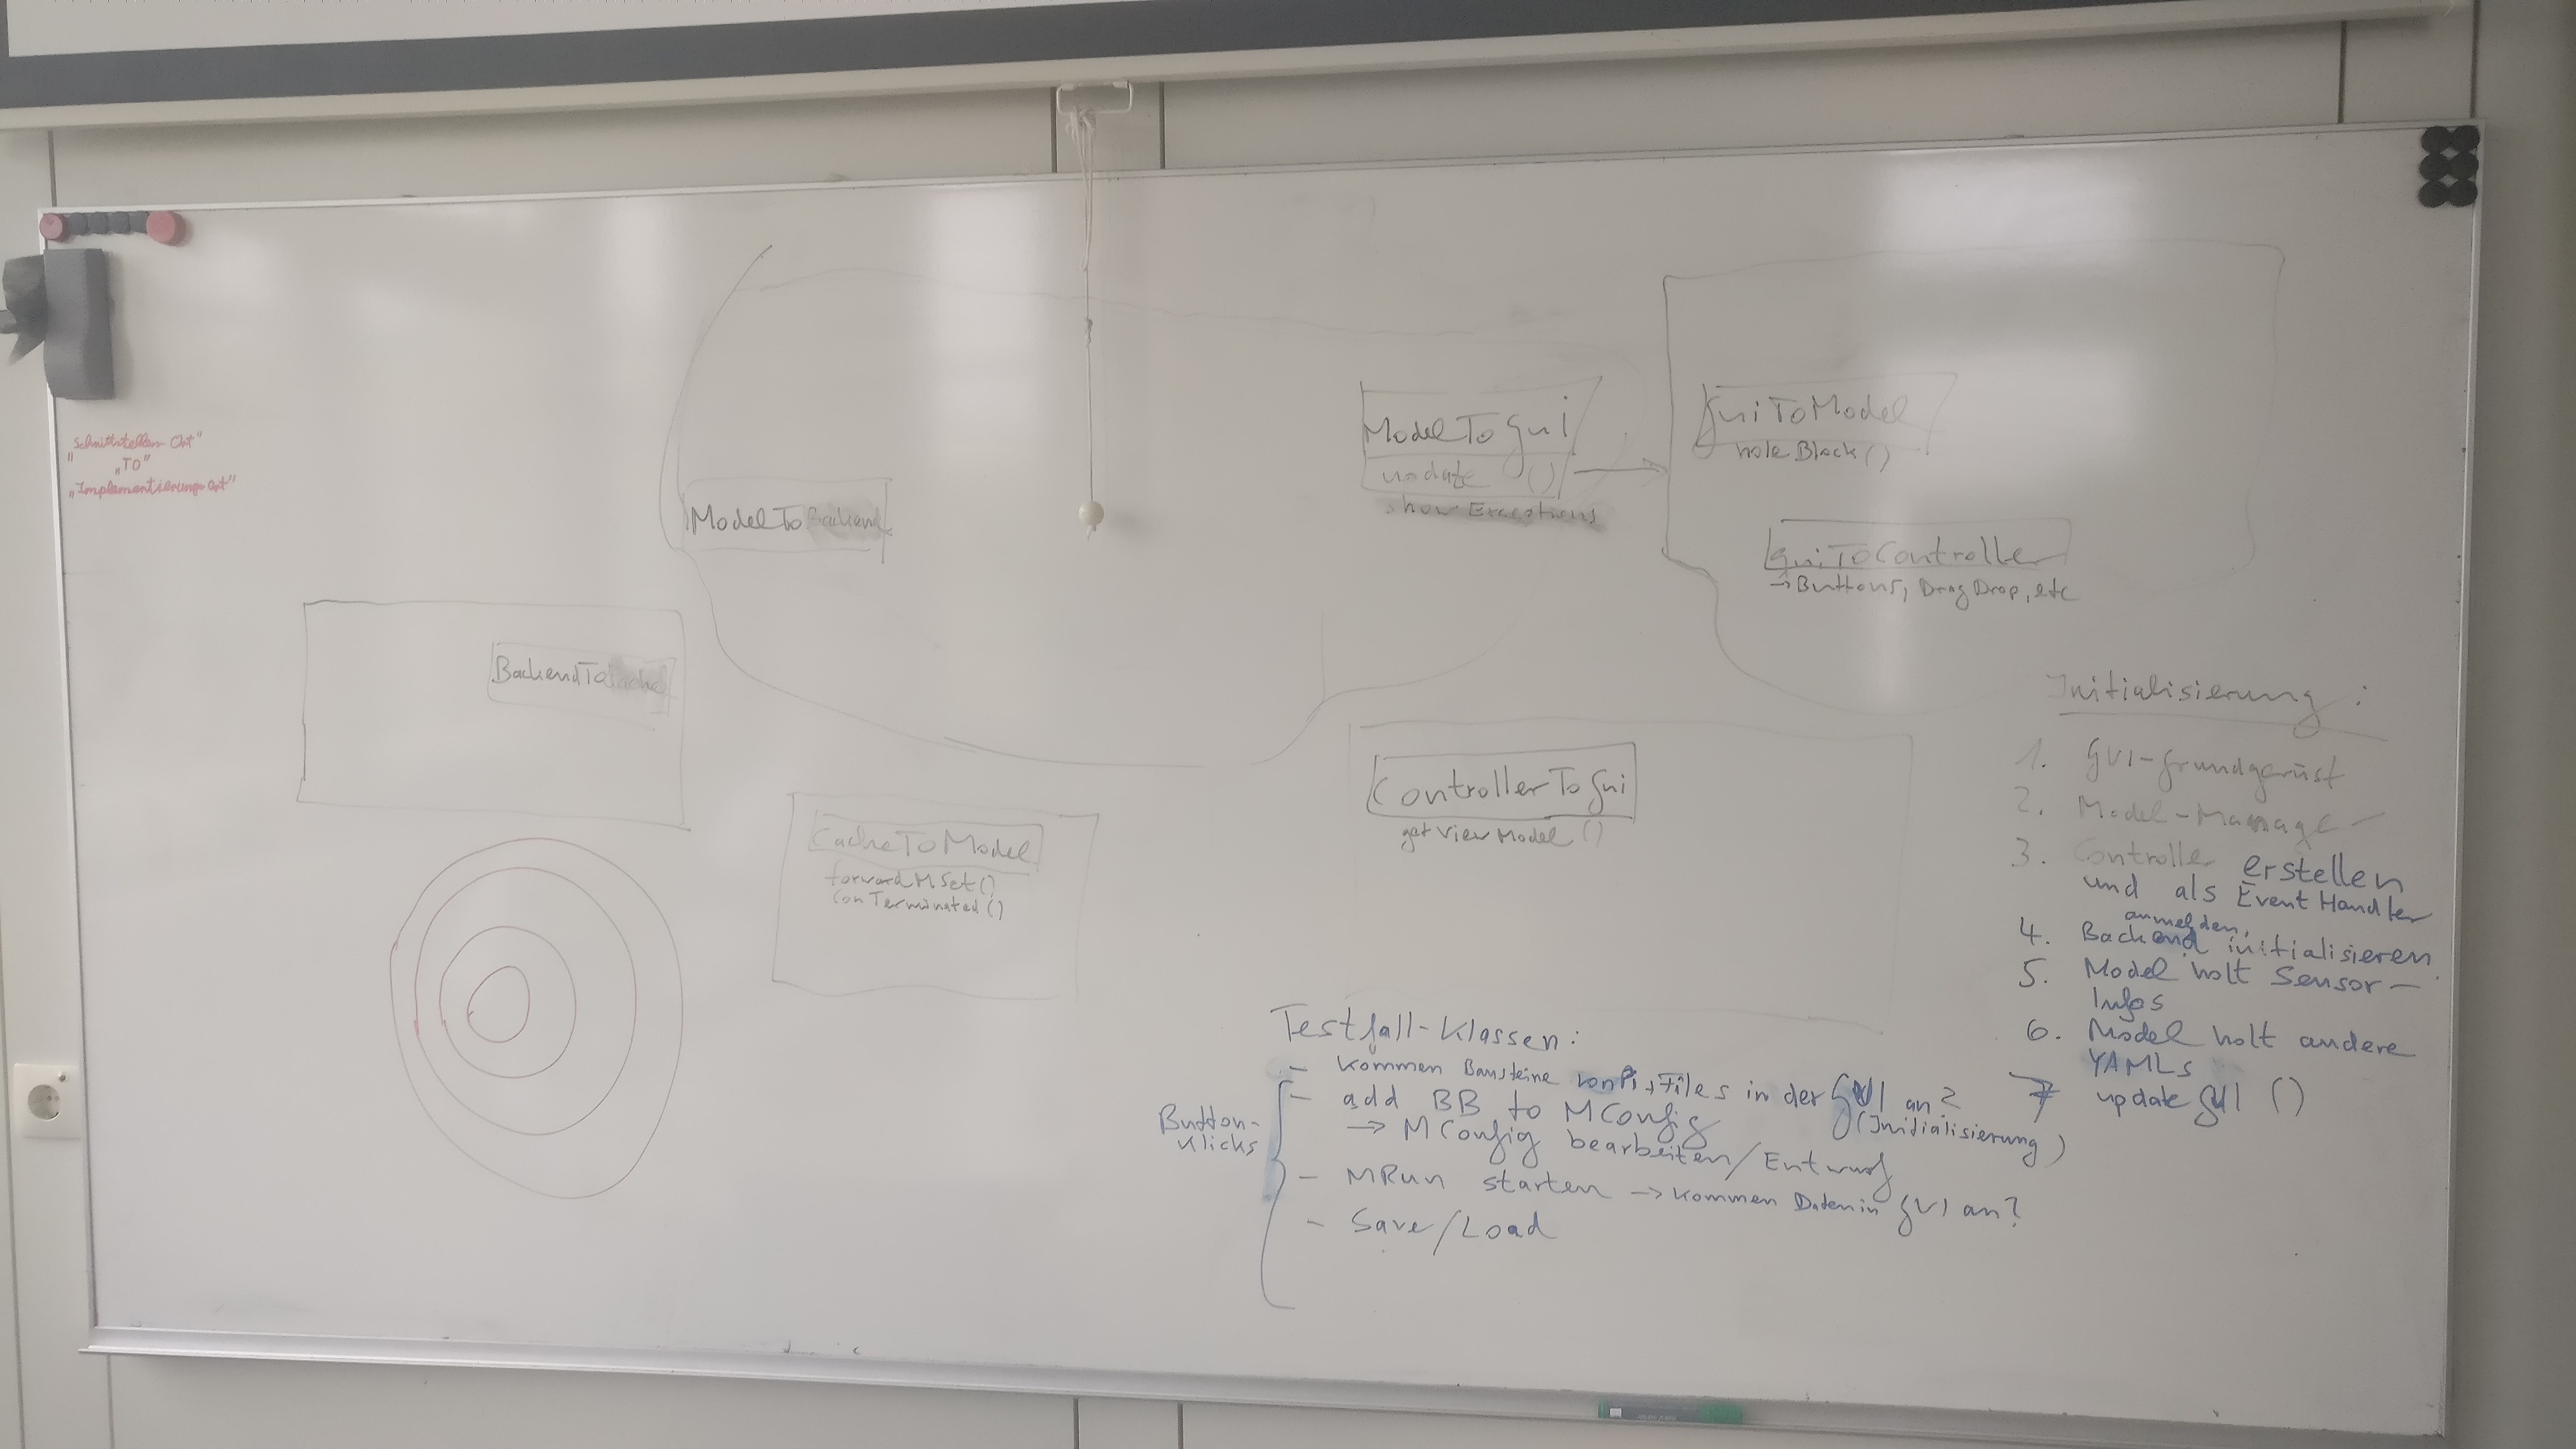 "Schnittstellen Ort"
"TO"
"Implementierungs Ort"
ModelToBackend
BackendToCache
CacheToModel
forwardMSet()
conTerminated()
ModelToGui
update ()
show Exceptions
GuiToModel
hole Block()
GuiToController
→ Buttons, Drag Drop, etc
ControllerToGui
get View Model ()
Initialisierung :
1. GUI-Grundgerüst
2. Model-Manage
3. Controller erstellen
und als Event Handler
anmelden,
4. Backend initialisieren
5. Model holt Sensor-
Infos
6. Model holt andere
YAMLs
7 update GUI ()
Testfall-Klassen:
- Kommen Bausteine von Pi, Files in der GUI an?
(Initialisierung)
Button-
Klicks
- add BB to MConfig
→ MConfig bearbeiten/Entwurf
- MRun starten → Kommen Daten in GUI an?
- Save/Load